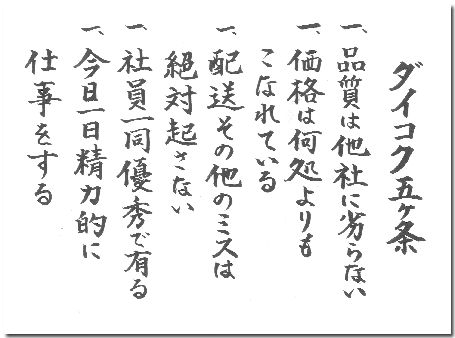 ダイコク五ヶ条
一、品質は他社に劣らない
一、価格は何処よりも
こなれている
一、配送その他のミスは
絶対起さない
一、社員一同優秀で有る
一、今日一日精力的に
仕事をする